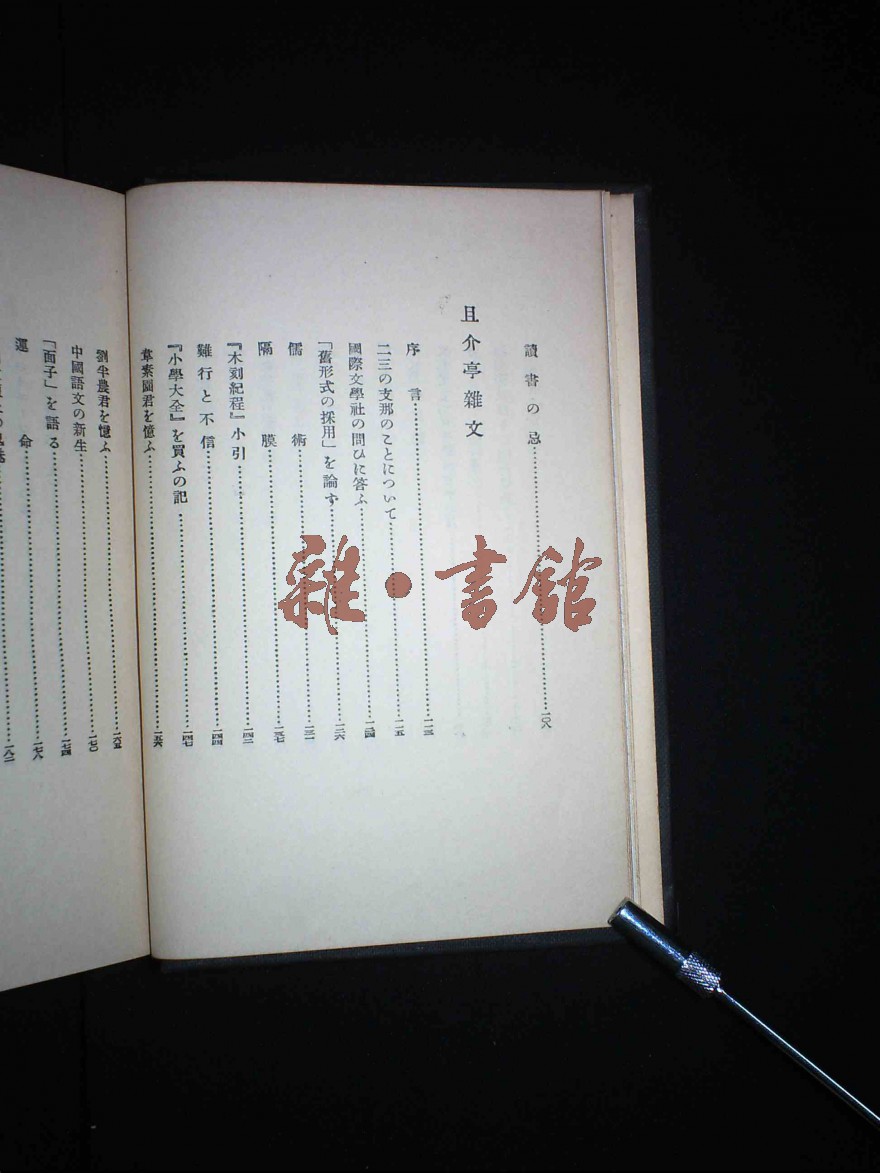 讀書の忌……一〇八
且介亭雜文
序言……一一三
二三の支那のことについて……一一五
國際文學社の問ひに答ふ……一二四
「舊形式の採用」を論ず……一二六
儒術……一三一
隔膜……一三七
『木刻紀程』小引……一四二
難行と不信……一四四
『小學大全』を買ふの記……一四七
韋素園君を憶ふ……一五六
劉半農君を憶ふ……一六五
中國語文の新生……一七〇
「面子」を語る……一七四
運命……一七八
一八二
雜·書館